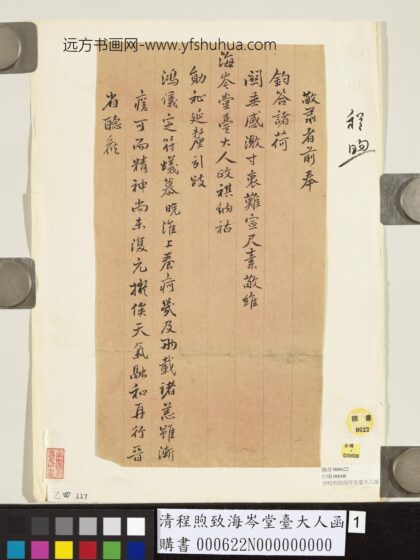 远方书画网-www.yfshuhua.com
程煦
敬肅者前奉
鈞答諸荷
關垂感激寸衷難宣尺素敬維
海岑堂臺大人政祺納祜
勛祉延釐引跂
鴻儀定符蟻慕晚淮上養疴幾及兩載諸恙雖漸
痊可而精神尚未復元擬俟天氣融和再行晉
省聽鼓
購書
0622
台購
000608
購書 000622
台購 00608
清程煦致海岑堂臺大人函
乙四 117
清程煦致海岑堂臺大人函 1
購書 000622N000000000